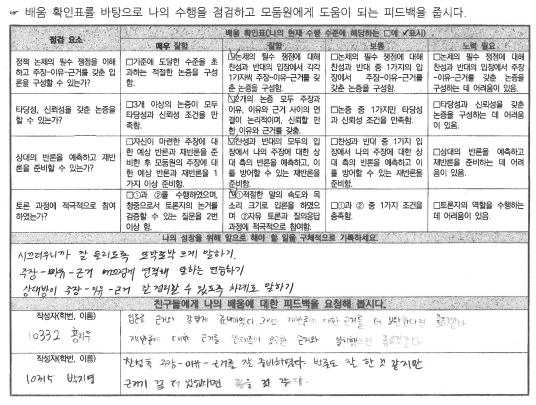 배움 확인표를 바탕으로 나의 수행을 점검하고 모둠원에게 도움이 되는 피드백을 줍시다.
점검 요소
배움 확인표(나의 현재 수행 수준에 해당하는 □에 ✓표시)
매우 잘함 잘함 보통 노력 필요
정책 논제의 필수 쟁점을 이해하고 주장-이유-근거를 갖춘 입론을 구성할 수 있는가?
□기준에 도달한 수준을 초과하는 적절한 논증을 구성함.
☑논제의 필수 쟁점에 대해 찬성과 반대의 입장에서 각각 1가지씩 주장-이유-근거를 갖춘 논증을 구성함.
□논제의 필수 쟁점에 대해 찬성과 반대 중 1가지의 입장에서 주장-이유-근거를 갖춘 논증을 구성함.
□논제의 필수 쟁점에 대해 찬성과 반대의 입장에서 주장-이유-근거를 갖춘 논증을 구성하는 데 어려움이 있음.
타당성, 신뢰성을 갖춘 논증을 할 수 있는가?
□3개 이상의 논증이 모두 타당성과 신뢰성 조건을 만족함.
☑2개의 논증 모두 주장과 이유, 이유와 근거 사이의 연결이 논리적이며, 신뢰할 만한 이유와 근거를 갖춤.
□논증 중 1가지만 타당성과 신뢰성 조건을 만족함.
□타당성과 신뢰성을 갖춘 논증을 구성하는 데 어려움이 있음.
상대의 반론을 예측하고 재반론을 준비할 수 있는가?
□자신이 마련한 주장에 대한 예상 반론과 재반론을 준비한 후 모둠원의 주장에 대한 예상 반론과 재반론을 1가지 이상 준비함.
☑찬성과 반대 모두의 입장에서 나의 주장에 대한 상대 측의 반론을 예측하고, 이를 방어할 수 있는 재반론을 준비함.
□찬성과 반대 중 1가지 입장에서 나의 주장에 대한 상대 측의 반론을 예측하고, 이를 방어할 수 있는 재반론을 준비함.
□상대의 반론을 예측하고 재반론을 준비하는 데 어려움이 있음.
토론 과정에 적극적으로 참여하였는가?
□①과 ②를 수행하였으며, 청중으로서 토론자의 논거를 검증할 수 있는 질문을 2번 이상 함.
☑①적절한 말의 속도와 목소리 크기로 입론을 하였으며 ②자유 토론과 질의응답 과정에 적극적으로 참여함.
□①과 ② 중 1가지 조건을 충족함.
□토론자의 역할을 수행하는 데 어려움이 있음.
나의 성장을 위해 앞으로 해야 할 일을 구체적으로 기록하세요.
시끄러우니까 잘 들리도록 또박또박 크게 말하기.
주장-이유-근거 매끄럽게 연결해 말하는 연습하기
상대방이 주장-이유-근거 잘 정리할 수 있도록 차례로 말하기
친구들에게 나의 배움에 대한 피드백을 요청해 봅시다.
작성자(학번, 이름)
10332
작성자(학번, 이름)
박지영
찬성측 주장-이유-근거를 잘 준비하였다. 반론도 잘 한 것 같지만
근거가 좀 더 있었다면 좋을 것 같다.